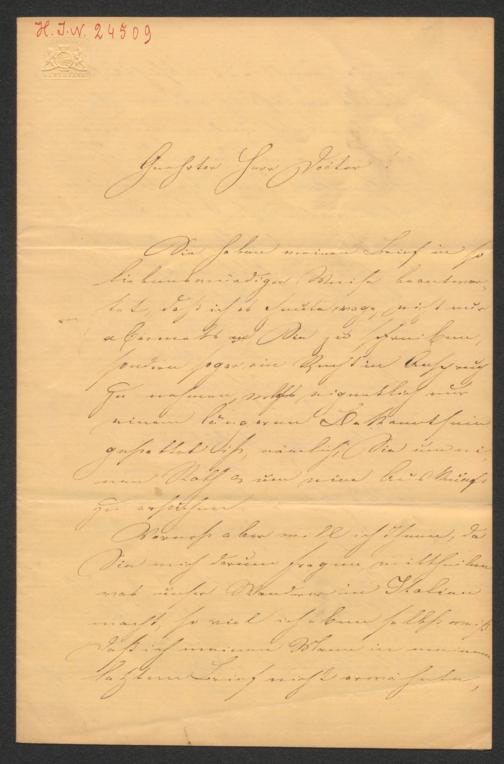 H. I. N. 24509
Geehrter Herr Doctor!
Sie haben meinen Brief in so
liebenswürdiger Weise beantwor-
tet, daß ich es heute wage, nicht nur
abermals an Sie zu schreiben,
sondern sogar ein Recht in Anspruch
zu nehmen, welches eigentlich nur
einem längeren Bekanntsein
gestattet ist, nämlich, Sie um ei-
nen Rath & um eine Auskunft
zu ersuchen.
Vorerst aber will ich Ihnen, da
Sie mich darum fragen mittheilen
was unser Wanderer in Italien
macht, so viel ich eben selbst weiß
Daß ich meinen Mann in meinem
letzten Brief nicht erwähnte,